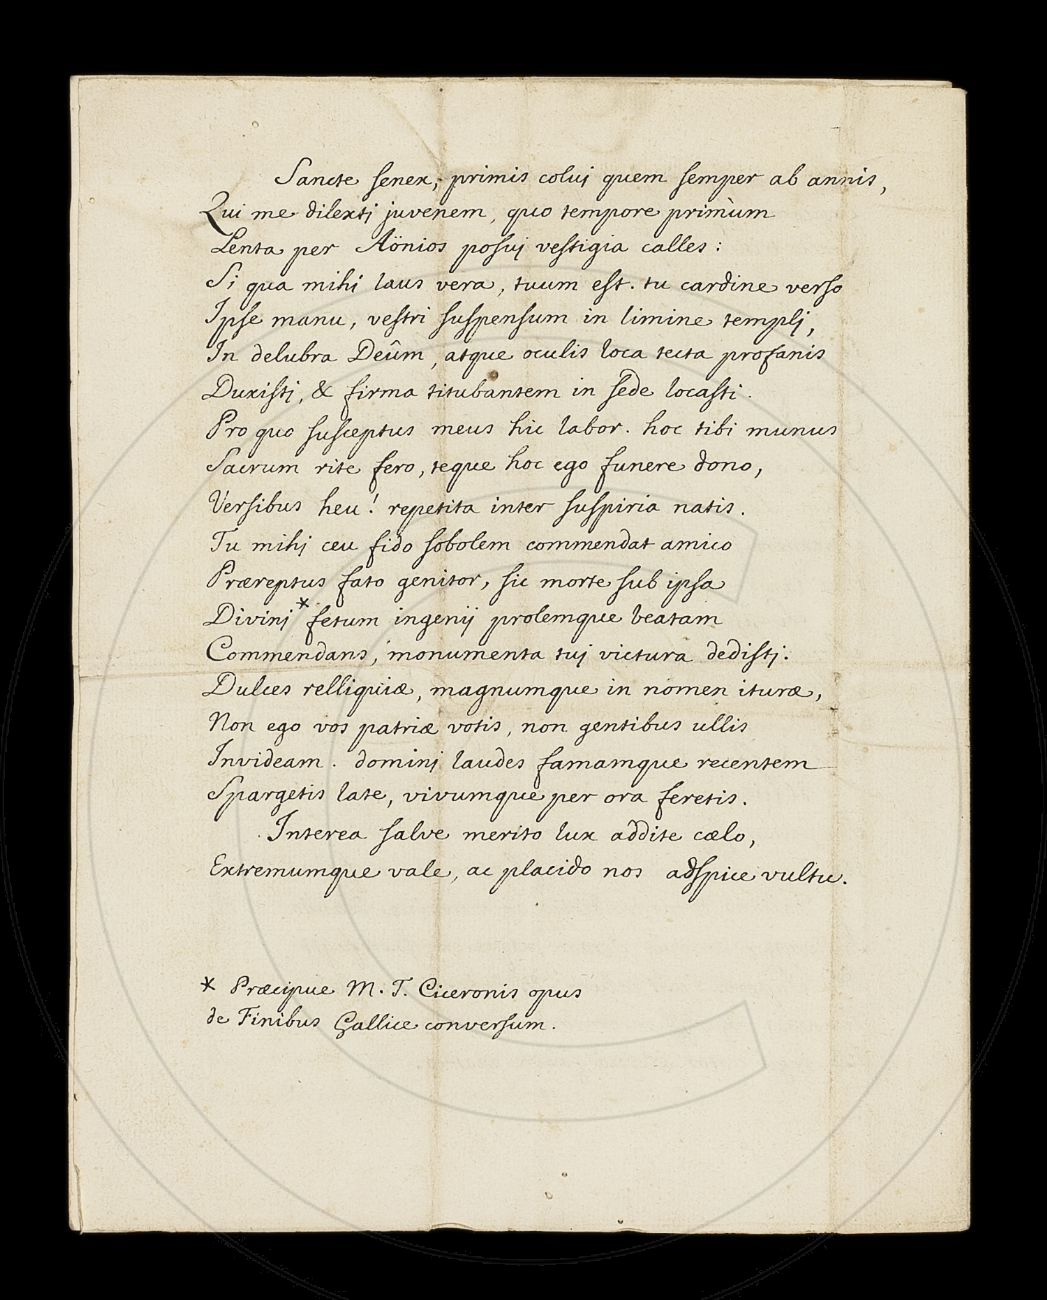 Sancte senex, primis coluj quem semper ab annis,
Qui me dilextj juvenem, quo tempore primùm
Lenta per Aönios posuj vestigia calles:
Si qua mihi laus vera, tuum est. tu cardine verso
Ipse manu, vestri suspensum in limine templj,
In delubra Deûm, atque oculis loca tecta profanis
Duxistj, & firma titubantem in sede locasti.
Pro quo susceptus meus hic labor. hoc tibi munus
Sacrum rite fero, teque hoc ego funere dono,
Versibus heu! repetita inter suspiria natis.
Tu mihj ceu fido sobolem commendat amico
Præreptus fato genitor, sic morte sub ipsa
Divinj * fetum ingenij prolemque beatam
Commendans, monumenta tuj victura dedistj.
Dulces relliquiæ, magnumque in nomen ituræ,
Non ego vos patriæ votis, non gentibus ullis
Invideam. dominj laudes famamque recentem
Spargetis late, vivumque per ora feretis.
Interea salve merito lux addite cælo,
Extremumque vale, ac placido nos adspice vultu.
* Præcipue M. T. Ciceronis opus
de Finibus Gallice conversum.